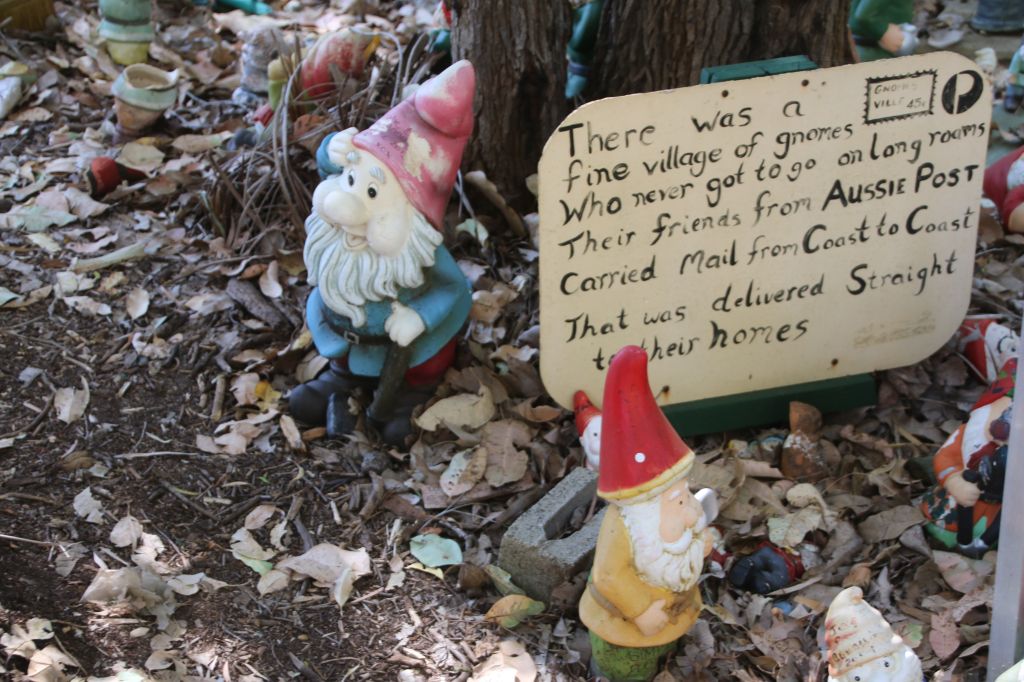 There was a
fine village of gnomes
Who never got to go on long roams
Their friends from AUSSIE POST
Carried Mail from Coast to Coast
That was delivered Straight
to their homes
GNOMES
VILLE 45c